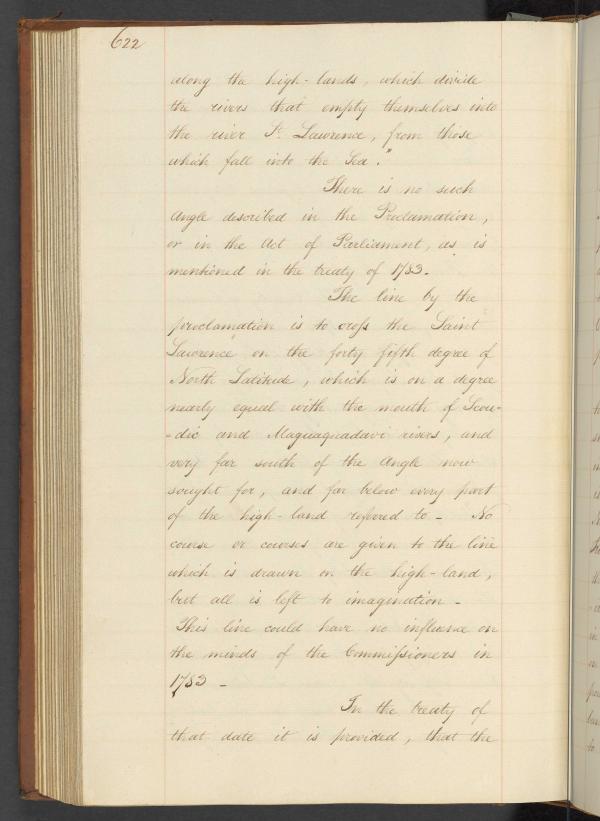 622
along the high-lands, which divide
the rivers that empty themselves into
the river St. Lawrence, from those
which fall into the Sea."
There is no such
Angle described in the Proclamation,
or in the Act of Parliament, as is
mentioned in the treaty of 1783.
The line by the
proclamation is to cross the Saint
Lawrence on the forty fifth degree of
North Latitude, which is on a degree
nearly equal with the mouth of Scou-
-dic and Maguaguadavi rivers, and
very far south of the Angle now
sought for, and far below every part
of the high-land referred to - No
course or courses are given to the line
which is drawn on the high-land,
but all is left to imagination -
This line could have no influence on
the minds of the Commissioners in
1783 -
In the treaty of
that date it is provided, that the